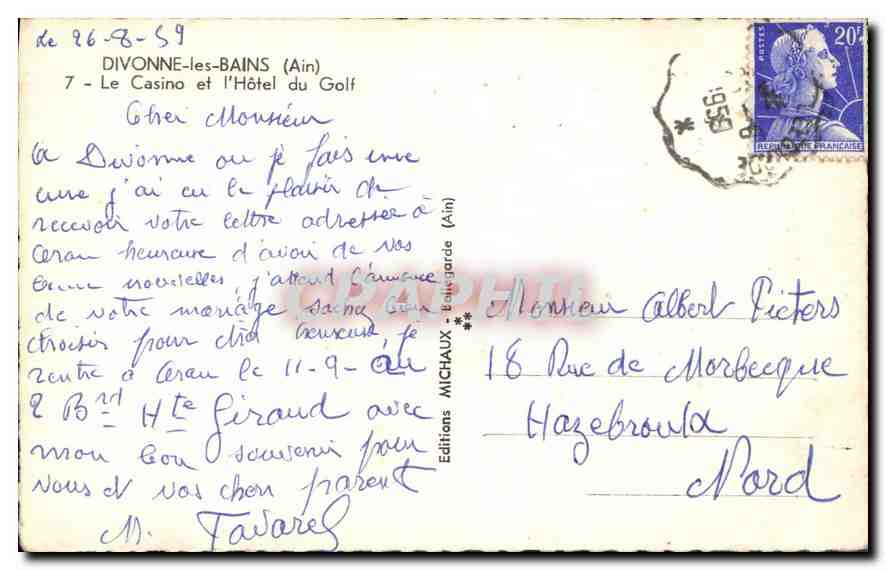 Le 26-8-59
DIVONNE-les-BAINS (Ain)
7 - Le Casino et l'Hôtel du Golf
Cher Monsieur
A Divonne ou je fais une
cure j'ai eu le plaisir de
recevoir votre lettre adressée à
heureuse d'avoir de vos
bonne nouvelles, j'attend l'annonce
de votre mariage sachez bien
choisir pour être heureuse, je
rentre à le 11-9- au
2 Brd Hte Giraud avec
mon bon souvenir pour
vous et vos chers parent
M. Tavarel
Editions MICHAUX - Bellegarde (Ain)
**
*
CPAPHIL
POSTES
20F
REPUBLIQUE FRANÇAISE
1959
Monsieur Albert Pieters
18 Rue de Morbecque
Hazebrouck
Nord